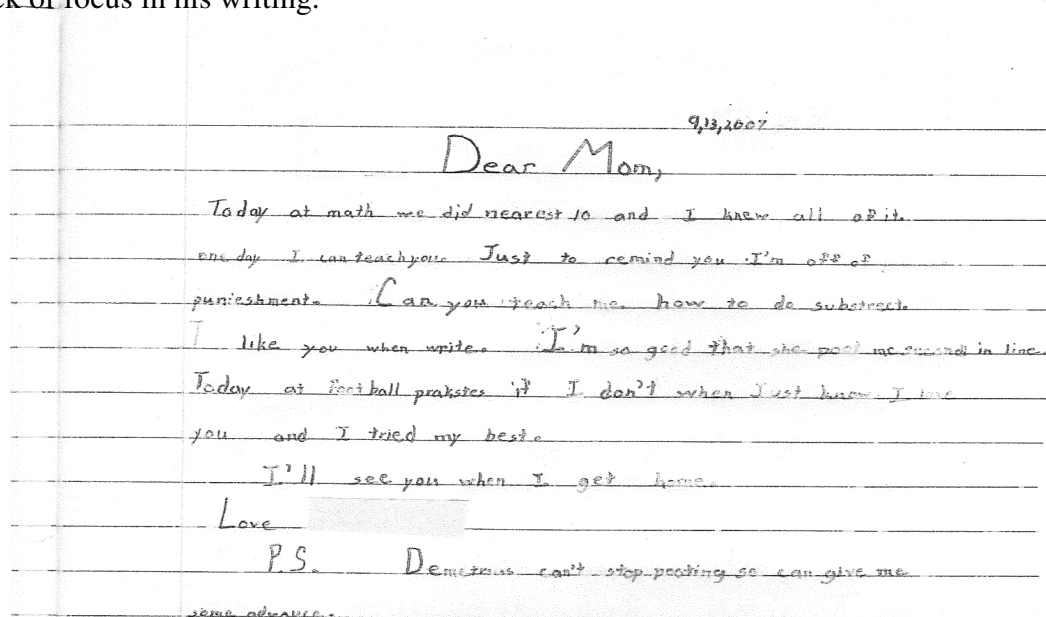 of focus in his writing.
9,13,2007
Dear Mom,
Today at math we did nearest 10 and I knew all of it.
one day I can teach you. Just to remind you I'm off of
punieshment. Can you teach me how to do substrect.
I like you when write. I'm so good that she poot me second in line.
Today at football prakstes if I don't when Just know I love
you and I tried my best.
I'll see you when I get home.
Love
P.S. Demetrius can't stop peaking so can give me
some advance.